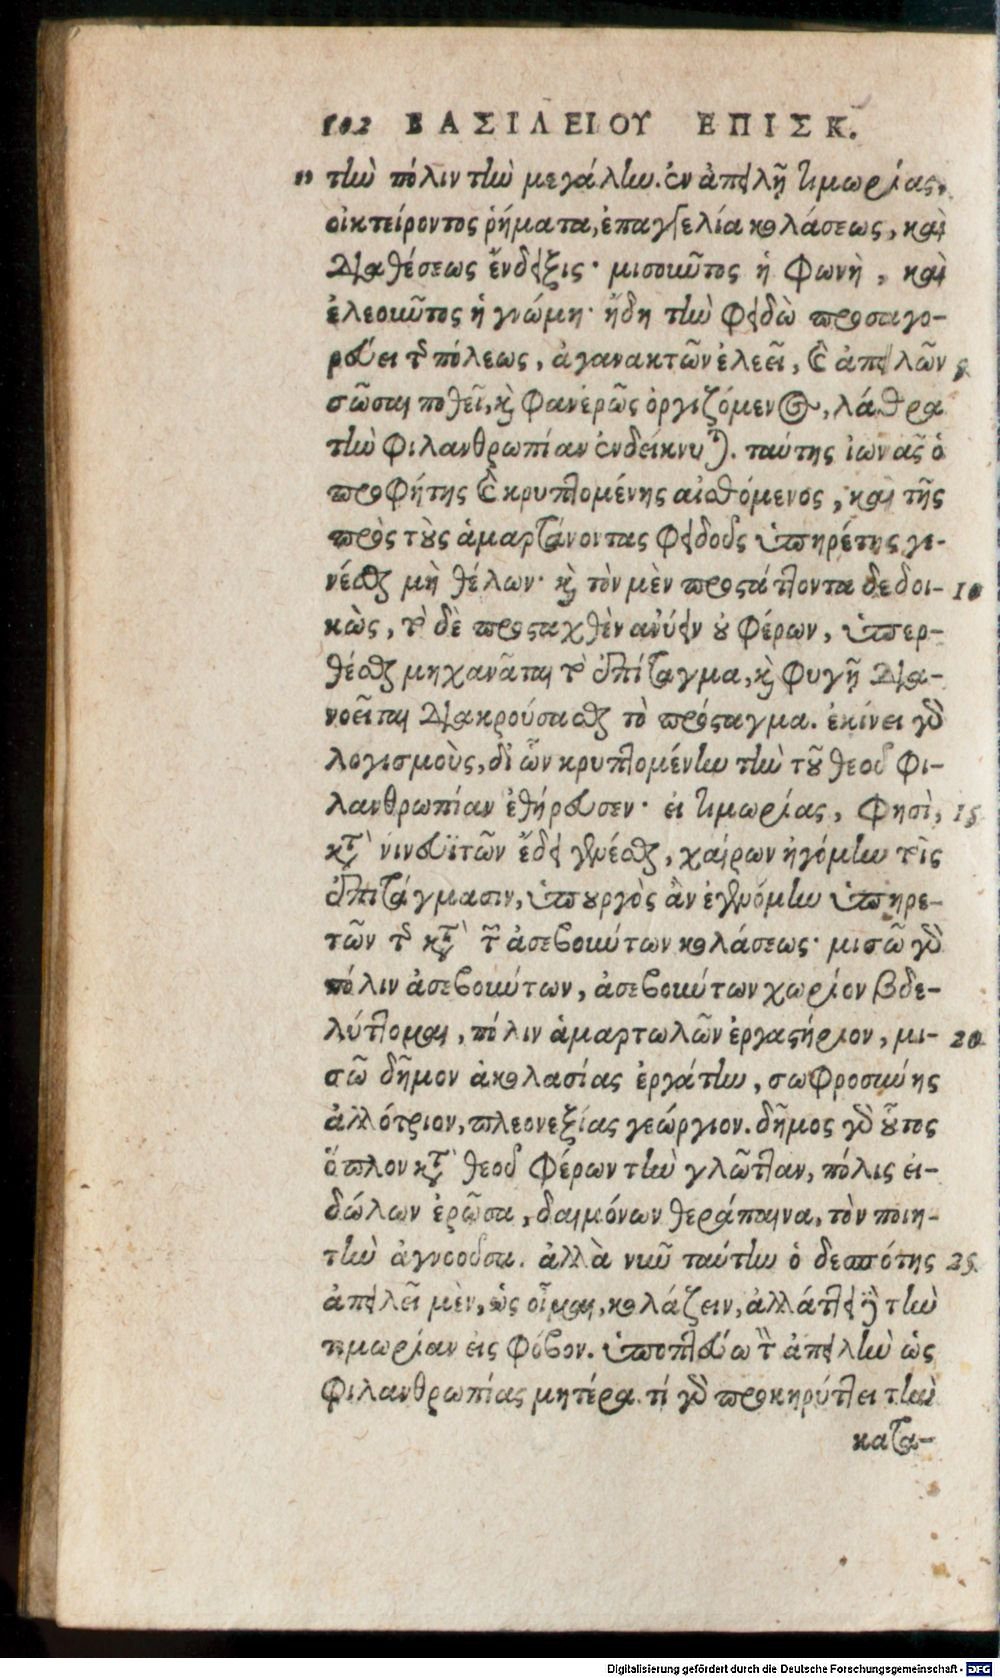 102 ΒΑΣΙΛΕΙΟΥ ΕΠΙΣΚ.
„ τὴν πόλιν τὴν μεγάλην. ἐν ἀπειλῇ τιμωρίας,
οἰκτείροντος ῥήματα, ἐπαγγελία κολάσεως, καὶ
διαθέσεως ἔνδειξις· μισοῦντος ἡ φωνὴ, καὶ
ἐλεοῦντος ἡ γνώμη· ἤδη τὴν φειδὼ προσαγο-
ρεύει τῆς πόλεως, ἀγανακτῶν ἐλεεῖ, καὶ ἀπειλῶν 5
σῶσαι ποθεῖ, καὶ φανερῶς ὀργιζόμενος, λάθρα
τὴν φιλανθρωπίαν ἐνδείκνυται. ταύτης ἰωνᾶς ὁ
προφήτης καὶ κρυπτομένης αἰσθόμενος, καὶ τῆς
πρὸς τοὺς ἁμαρτάνοντας φειδοῦς ὑπηρέτης γε-
νέσθαι μὴ θέλων· καὶ τὸν μὲν προστάττοντα δεδοι- 10
κὼς, τὸ δὲ προσταχθὲν ἀνύειν οὐ φέρων, ὑπερ-
θέσθαι μηχανᾶται τὸ ἐπίταγμα, καὶ φυγῇ δια-
νοεῖται διακρούσασθαι τὸ πρόσταγμα. ἐκίνει γὰρ
λογισμοὺς, δι' ὧν κρυπτομένην τὴν τοῦ θεοῦ φι-
λανθρωπίαν ἐθήρευσεν· εἰ τιμωρίας, φησὶ, 15
κατὰ νινευϊτῶν ἔδει γενέσθαι, χαίρων ἡγόμην τοῖς
ἐπιτάγμασιν, ὑπουργὸς ἂν ἐγενόμην ὑπηρε-
τῶν τῆς κατὰ τῶν ἀσεβούντων κολάσεως· μισῶ γὰρ
πόλιν ἀσεβούντων, ἀσεβούντων χωρίον βδε-
λύττομαι, πόλιν ἁμαρτωλῶν ἐργαστήριον, μι- 20
σῶ δῆμον ἀκολασίας ἐργάτην, σωφροσύνης
ἀλλότριον, πλεονεξίας γεώργιον. δῆμος γὰρ οὗτος
ὅπλον κατὰ θεοῦ φέρων τὴν γλῶτταν, πόλις εἰ-
δώλων ἐρῶσα, δαιμόνων θεράπαινα, τὸν ποιη-
τὴν ἀγνοοῦσα. ἀλλὰ νῦν ταύτην ὁ δεσπότης 25
ἀπειλεῖ μὲν, ὡς οἶμαι, κολάζειν, ἀλλάττει δὲ τὴν
τιμωρίαν εἰς φόβον. ὑποπτεύω τὴν ἀπειλὴν ὡς
φιλανθρωπίας μητέρα. τί γὰρ προκηρύττει τὴν
κατα-
Digitalisierung gefördert durch die Deutsche Forschungsgemeinschaft - DFG